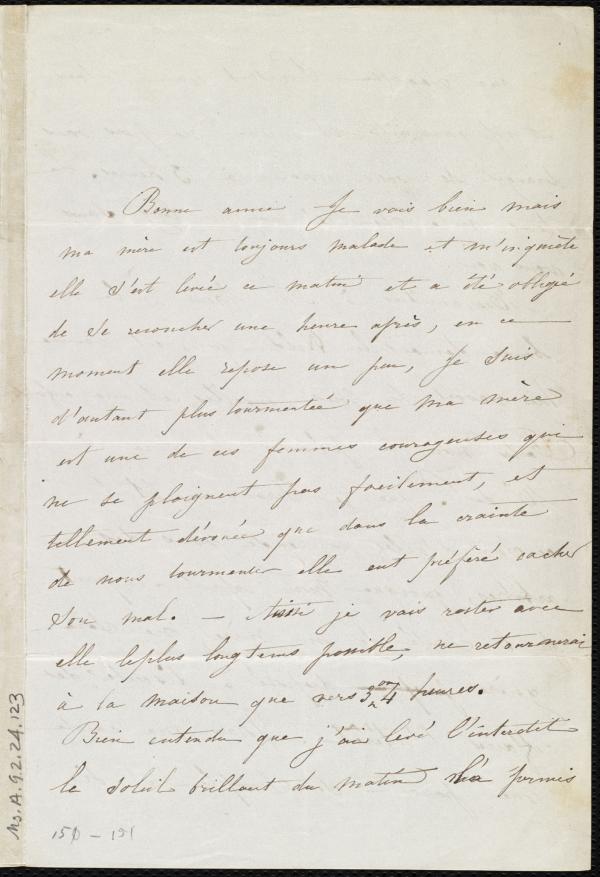 Bonne amie Je vais bien mais
ma mère est toujours malade et m'inquiète
elle s'est levée ce matin et a été obligé
de se recoucher une heure après, en ce
moment elle repose un peu, Je suis
d'autant plus tourmentée que ma mère
est une de ces femmes courageuses qui
ne se plaignent pas facilement, et
tellement dévouée que dans la crainte
de nous tourmenter elle eut préféré cacher
son mal. — Aussi je vais rester avec
elle le plus longtems possible, ne retournerai
à la maison que vers 3 ou 4 heures.
Bien entendu que j'ai levé l'interdit
le soleil brillant du matin l'a permis
Ms. A. 9.2.24.123
150 - 151